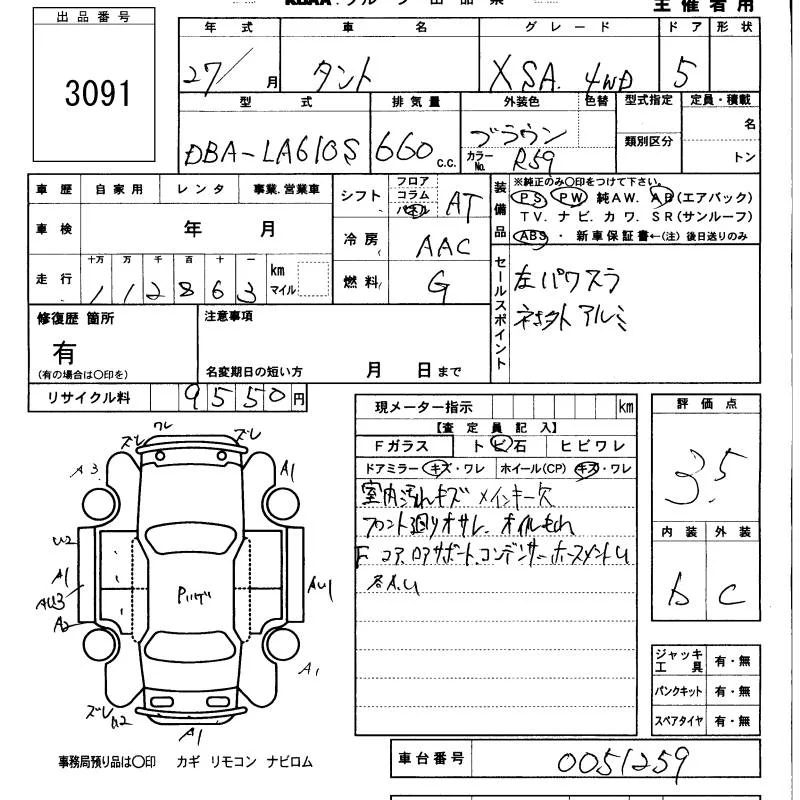 主催者用
出品番号
3091
年式 車名 グレード ドア 形状
27/ 月 タント X SA. 4WD 5
型式 排気量 外装色 色替 型式指定 定員・積載
DBA-LA610S 660 c.c. ブラウン 名
カラーNo. R59 類別区分 トン
車歴 自家用 レンタ 事業.営業車
シフト フロア コラム パネル AT
装備品
※純正のみ〇印をつけて下さい。
PS PW 純AW. AB(エアバック)
TV. ナビ. カワ. SR(サンルーフ)
ABS ・ 新車保証書←(注) 後日送りのみ
車検 年 月
冷房 AAC
走行 十万 万 千 百 十 一 km マイル
112863
燃料 G
セールスポイント
左パワスラ
社外アルミ
修復歴 箇所
有
(有の場合は〇印を)
注意事項
名変期日の短い方 月 日まで
リサイクル料 9550円
現メーター指示 km
【査定員記入】
Fガラス トビ石 ヒビワレ
ドアミラー キズ・ワレ ホイール(CP) キズ・ワレ
室内汚れキズ メインキー欠
フロント廻りオサレ. オイルもれ
F コア. ロアサポート. コンデンサー
各A.U
評価点
3.5
内装 外装
b C
ジャッキ工具 有・無
パンクキット 有・無
スペアタイヤ 有・無
ワレ
ズレ ズレ
A3 A1
U2
A1
AU3 AU1
A2
A1
ズレ
U2
A1
事務局預り品は〇印 カギ リモコン ナビロム
車台番号 0051259